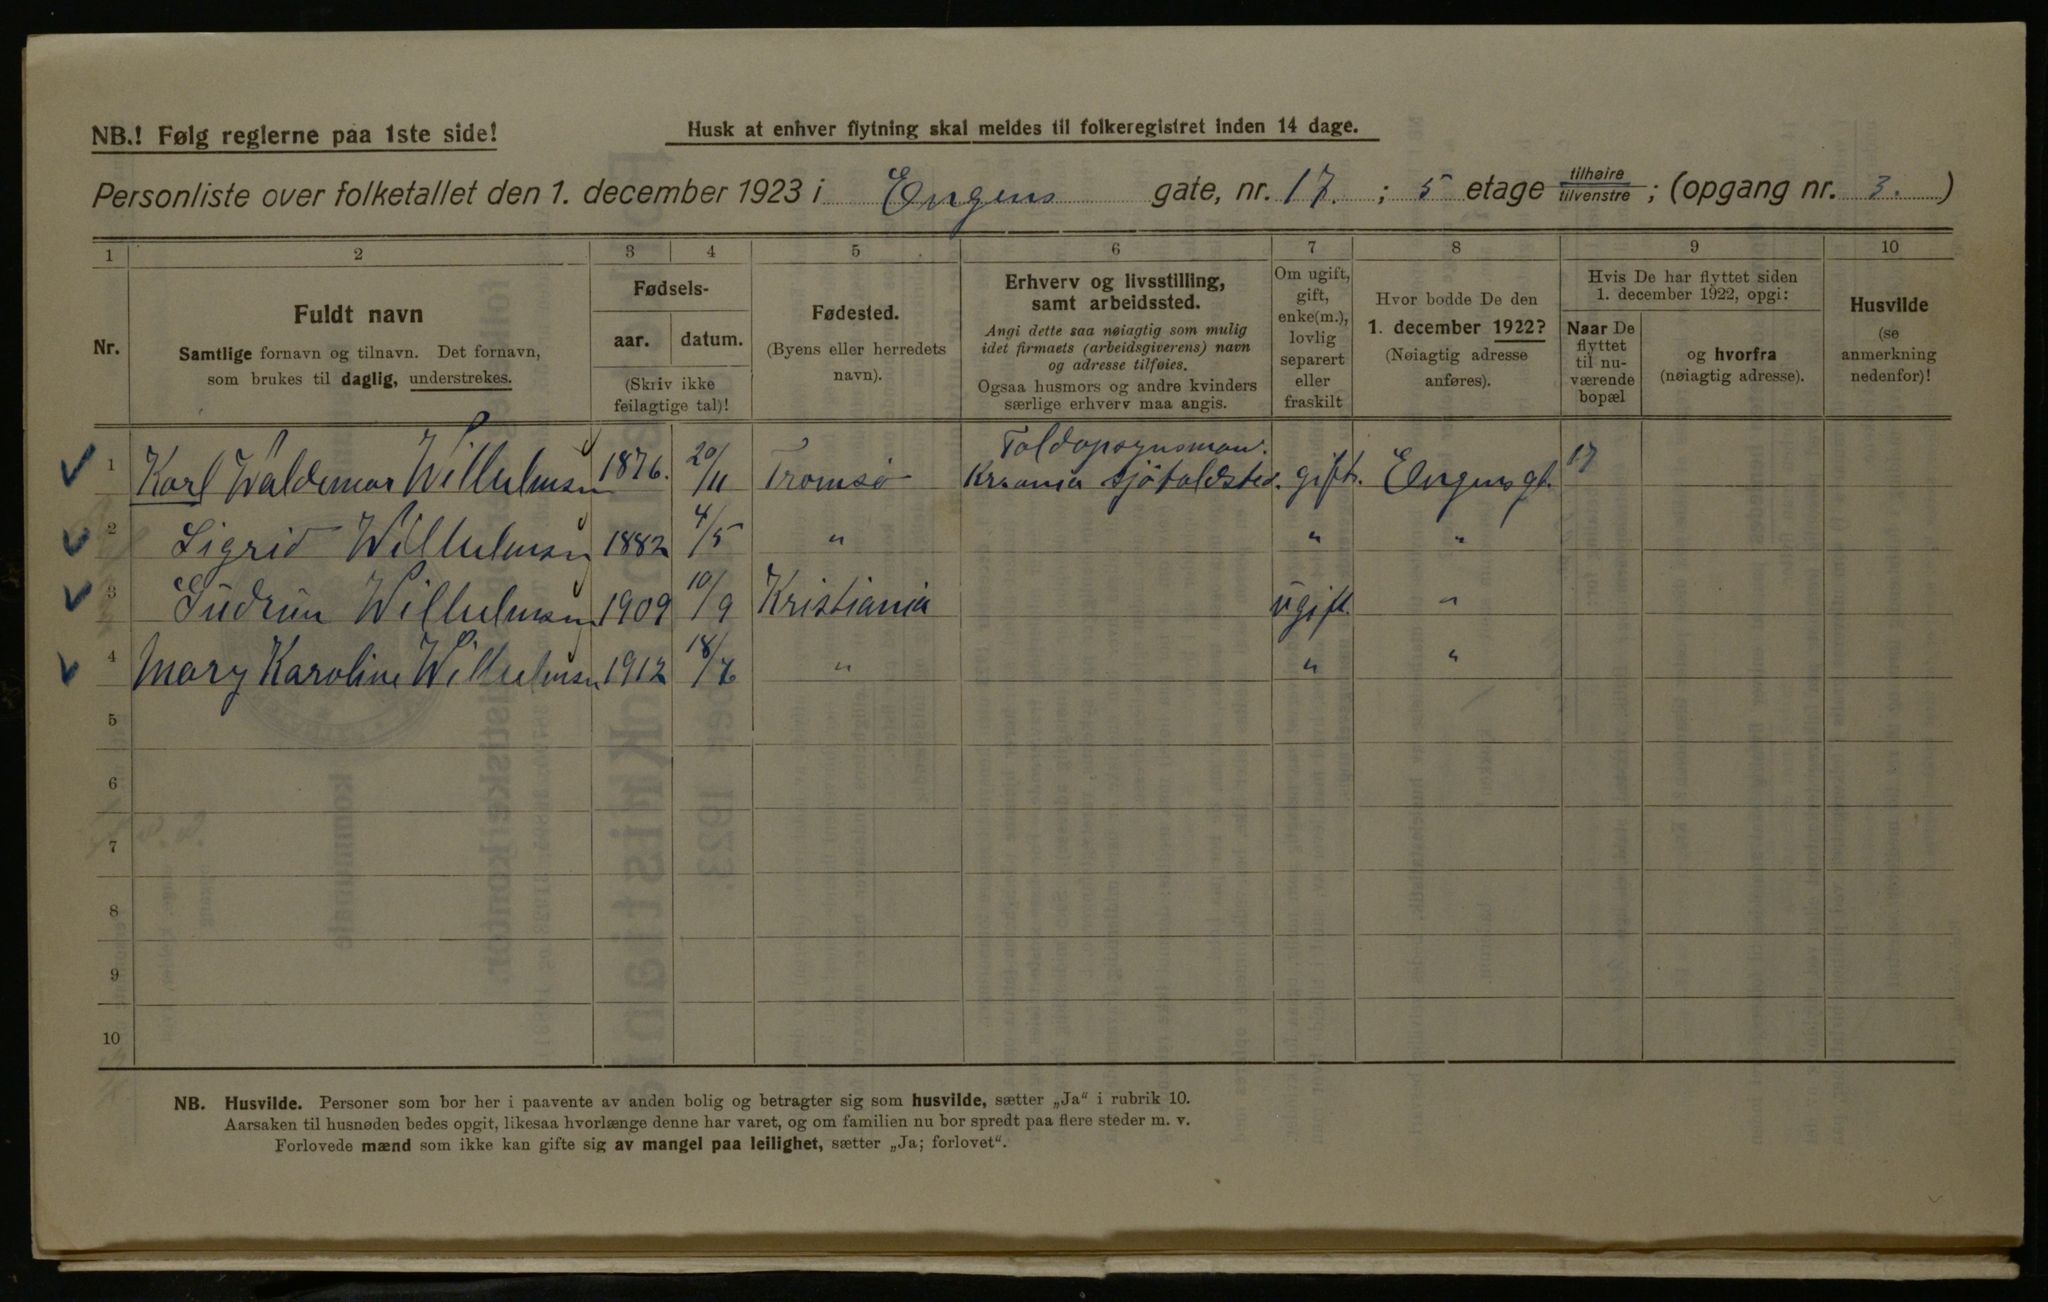 NB.! Følg reglerne paa 1ste side!
Husk at enhver flytning skal meldes til folkeregistret inden 14 dage.
Personliste over folketallet den 1. december 1923 i Engens gate, nr. 17. ; 5 etage tilhøire/tilvenstre ; (opgang nr. 3. )
1 2 3 4 5 6 7 8 9 10
Nr.
Fuldt navn
Samtlige fornavn og tilnavn. Det fornavn,
som brukes til daglig, understrekes.
Fødsels-
aar. datum.
(Skriv ikke
feilagtige tal)!
Fødested.
(Byens eller herredets
navn).
Erhverv og livsstilling,
samt arbeidssted.
Angi dette saa nøiagtig som mulig
idet firmaets (arbeidsgiverens) navn
og adresse tilføies.
Ogsaa husmors og andre kvinders
særlige erhverv maa angis.
Om ugift,
gift,
enke(m.),
lovlig
separert
eller
fraskilt
Hvor bodde De den
1. december 1922?
(Nøiagtig adresse
anføres).
Hvis De har flyttet siden
1. december 1922, opgi:
Naar De
flyttet
til nu-
værende
bopæl
og hvorfra
(nøiagtig adresse).
Husvilde
(se
anmerkning
nedenfor)!
1 Karl Waldemar Wilhelmsen 1876. 20/11 Tromsø Toldopsynsman. Krania Sjötoldsted. gift. Engens gt. 17
2 Sigrid Wilhelmsen 1882 4/5 " " "
3 Gudrun Wilhelmsen 1909 10/9 Kristiania ugift. "
4 Mary Karoline Wilhelmsen 1912 18/6 " " "
5
6
7
8
9
10
NB. Husvilde. Personer som bor her i paavente av anden bolig og betragter sig som husvilde, sætter „Ja“ i rubrik 10.
Aarsaken til husnøden bedes opgit, likesaa hvorlænge denne har varet, og om familien nu bor spredt paa flere steder m. v.
Forlovede mænd som ikke kan gifte sig av mangel paa leilighet, sætter „Ja; forlovet“.